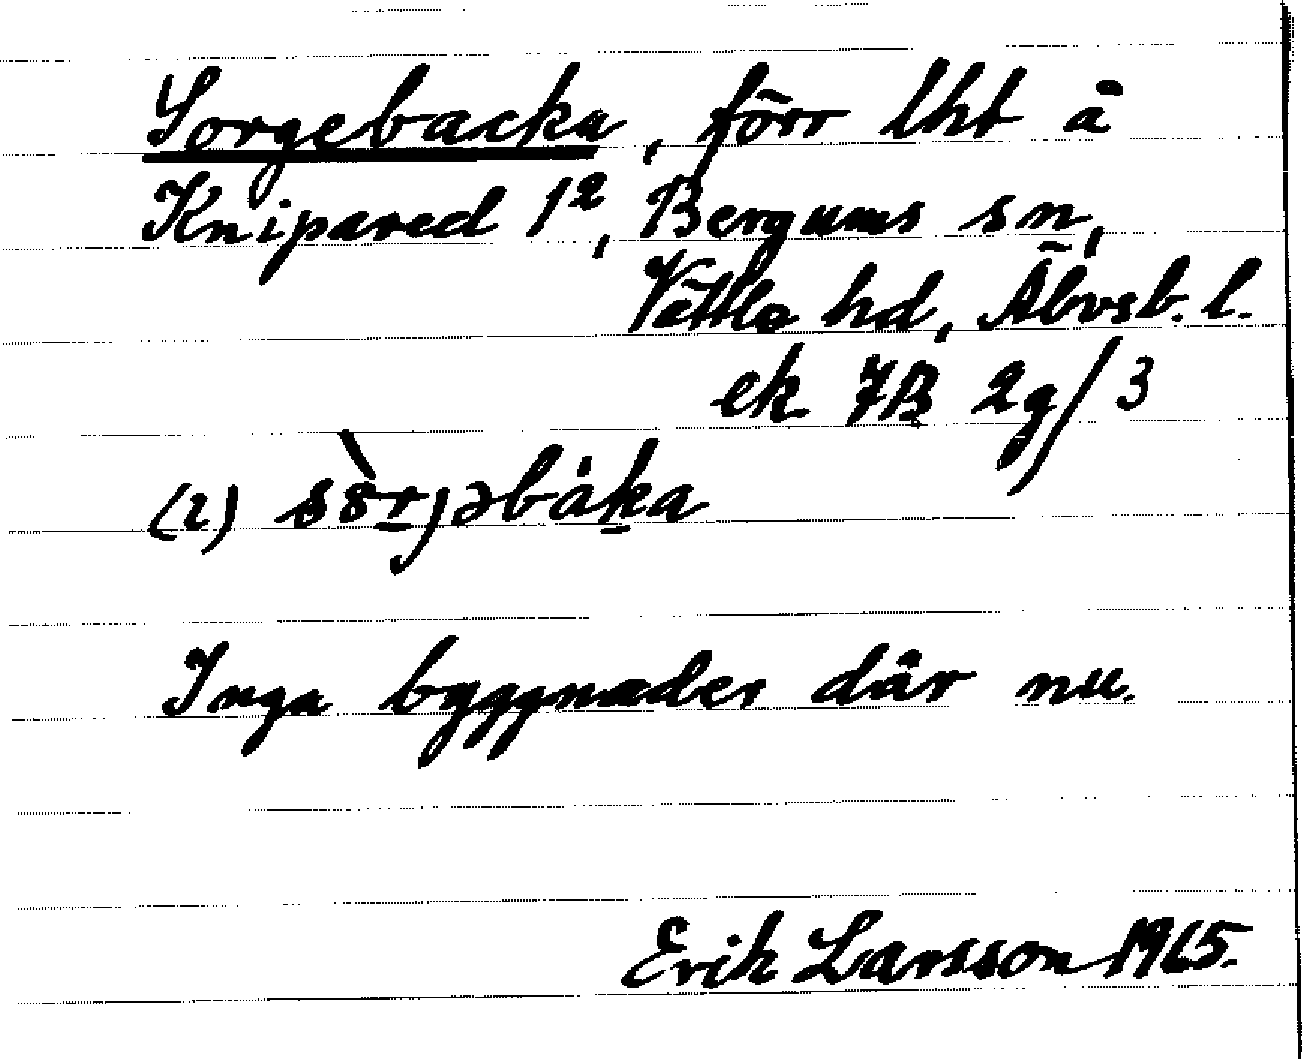 Sorgebacka, förr lht å
Knipared 1², Bergums sn,
Vättle hd, Älvsb. l.
ek 7B 2g/3
(2) sòrjəbàka
Inga byggnader där nu.
Erik Larsson 1965.